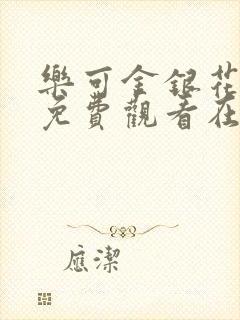 樂可金銀花
免費觀看在
應潔